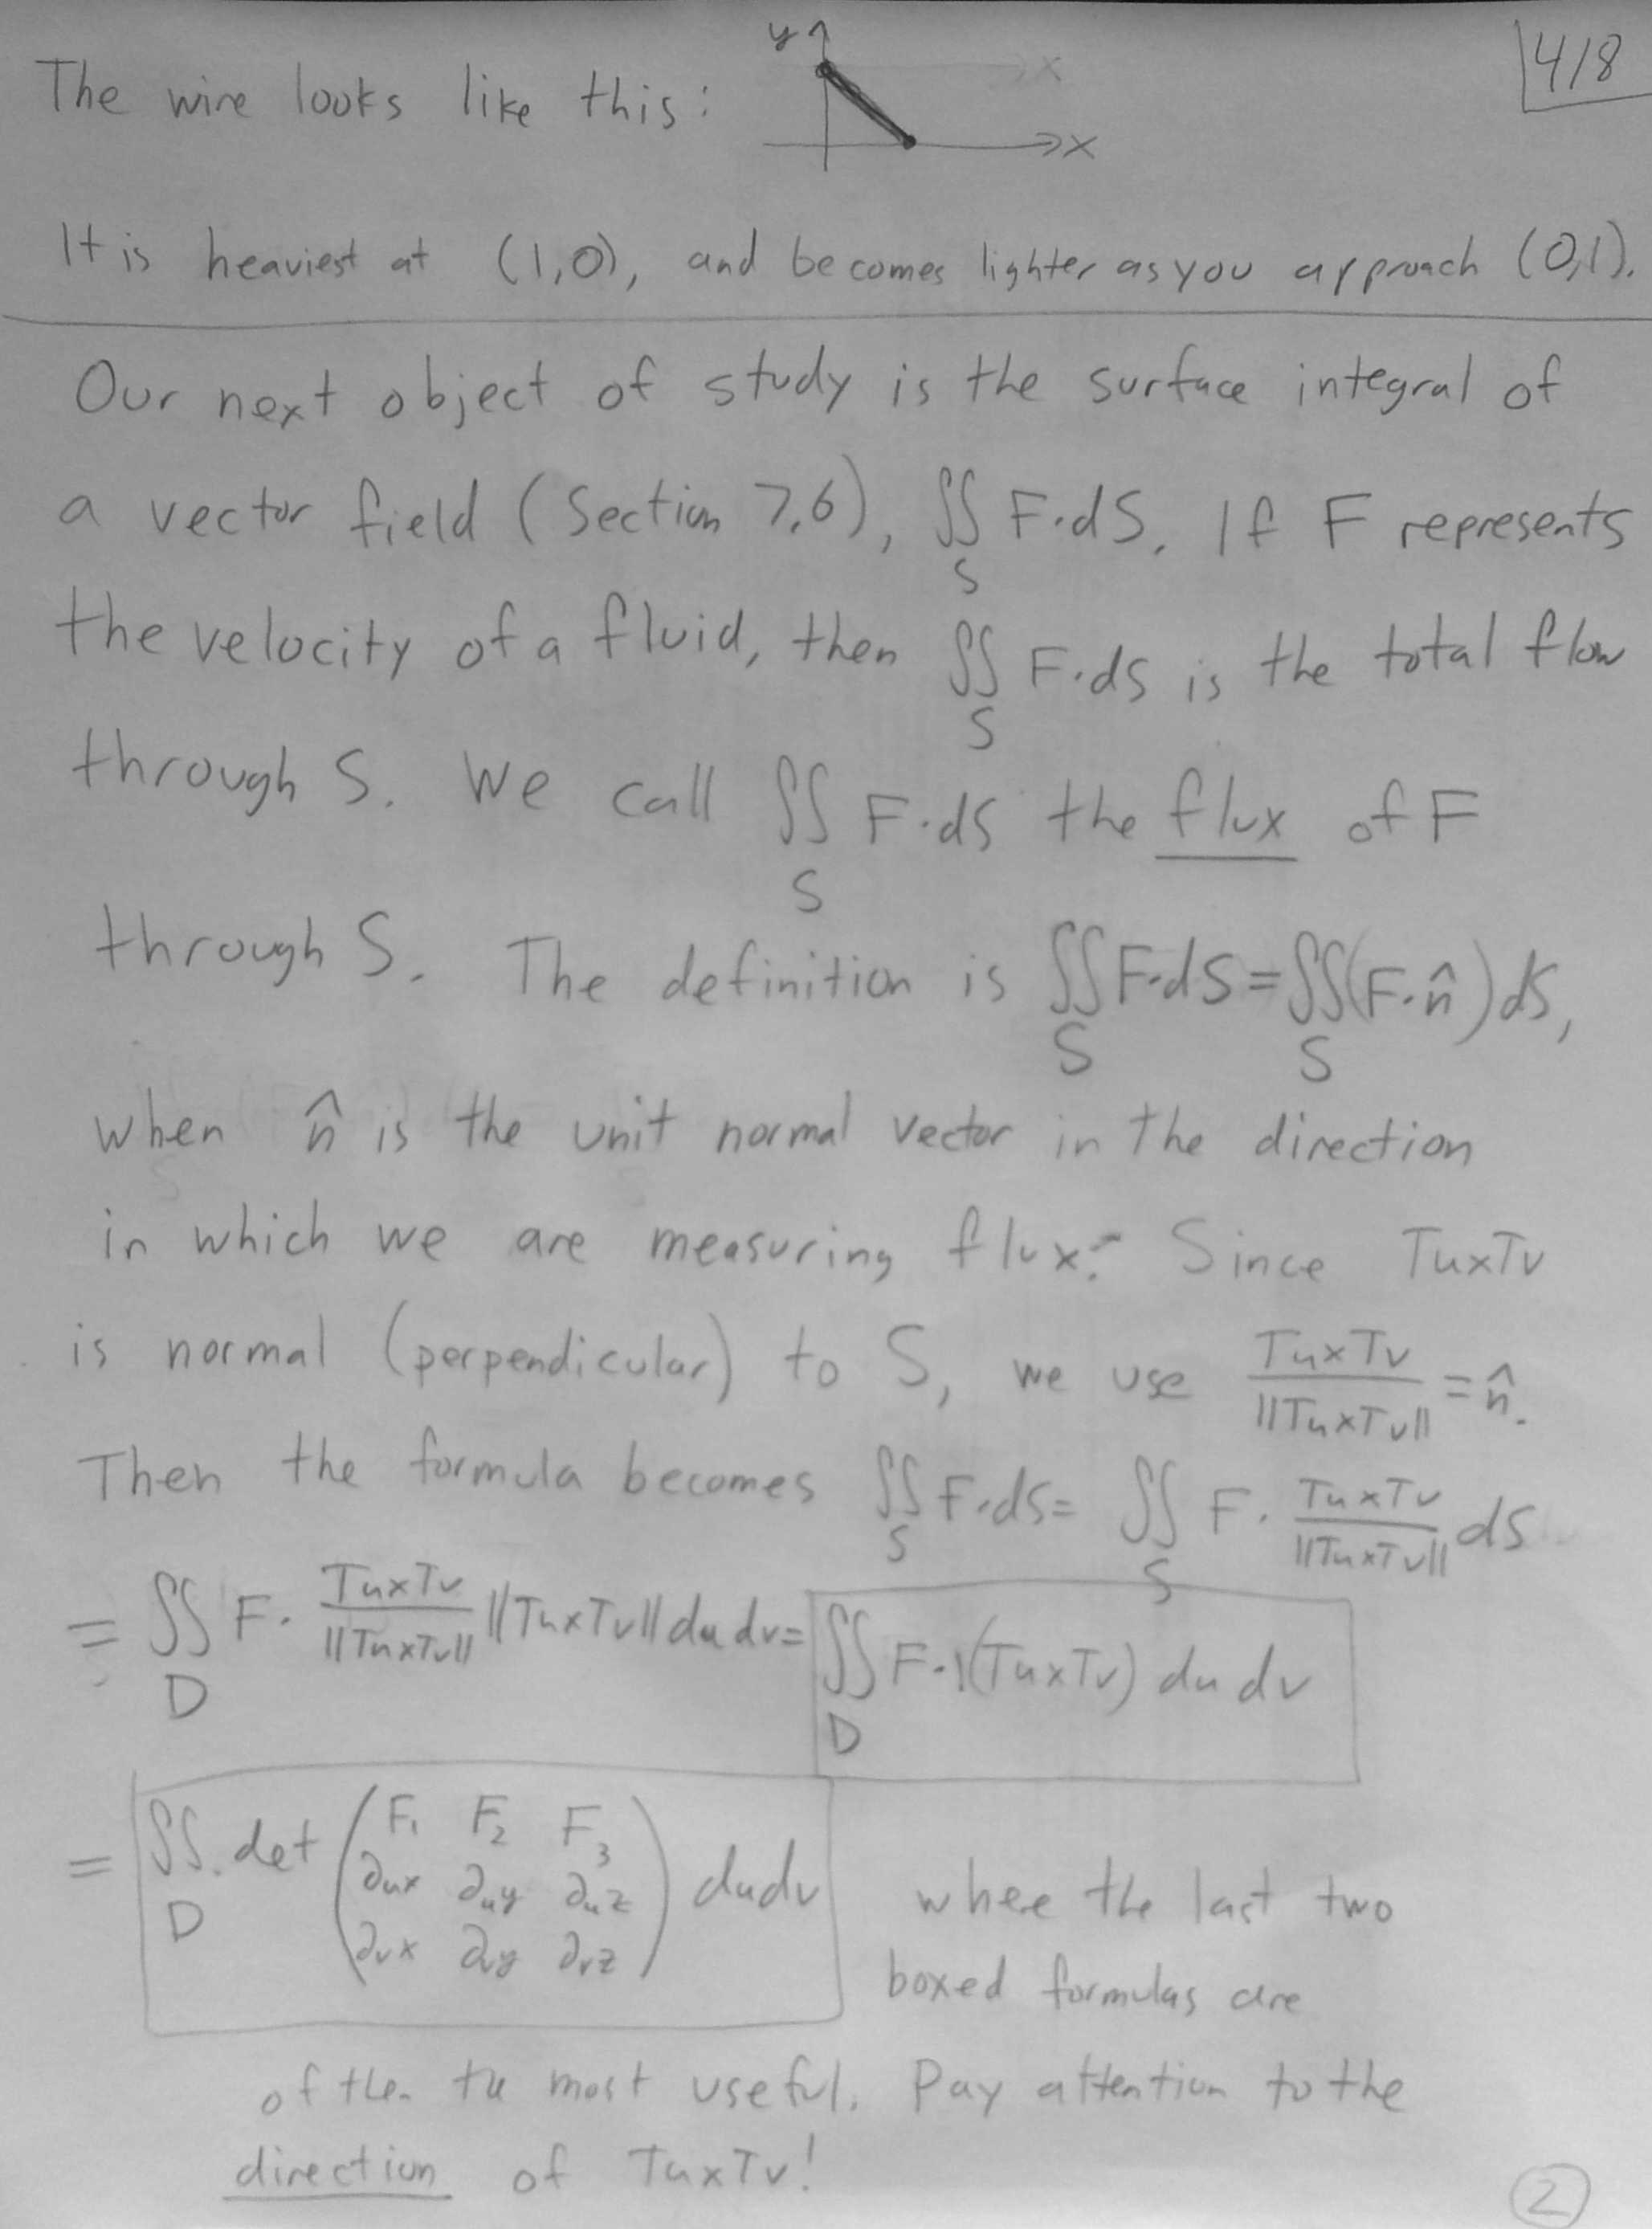 4/8
The wire looks like this:
y
x
x
It is heaviest at (1,0), and becomes lighter as you approach (0,1).
Our next object of study is the surface integral of
a vector field (Section 7.6), ∬_S F·dS. If F represents
the velocity of a fluid, then ∬_S F·dS is the total flow
through S. We call ∬_S F·dS the flux of F
through S. The definition is ∬_S F·dS = ∬_S (F·n̂) dS,
when n̂ is the unit normal vector in the direction
in which we are measuring flux. Since TuxTv
is normal (perpendicular) to S, we use TuxTv/||TuxTv|| = n̂.
Then the formula becomes ∬_S F·dS = ∬_S F· TuxTv/||TuxTv|| dS
= ∬_D F· TuxTv/||TuxTv|| ||TuxTv|| du dv = ∬_D F·(TuxTv) du dv
= ∬_D det (F₁ F₂ F₃
∂ux ∂uy ∂uz
∂vx ∂vy ∂vz) dudv where the last two
boxed formulas are
often the most useful. Pay attention to the
direction of TuxTv!
2